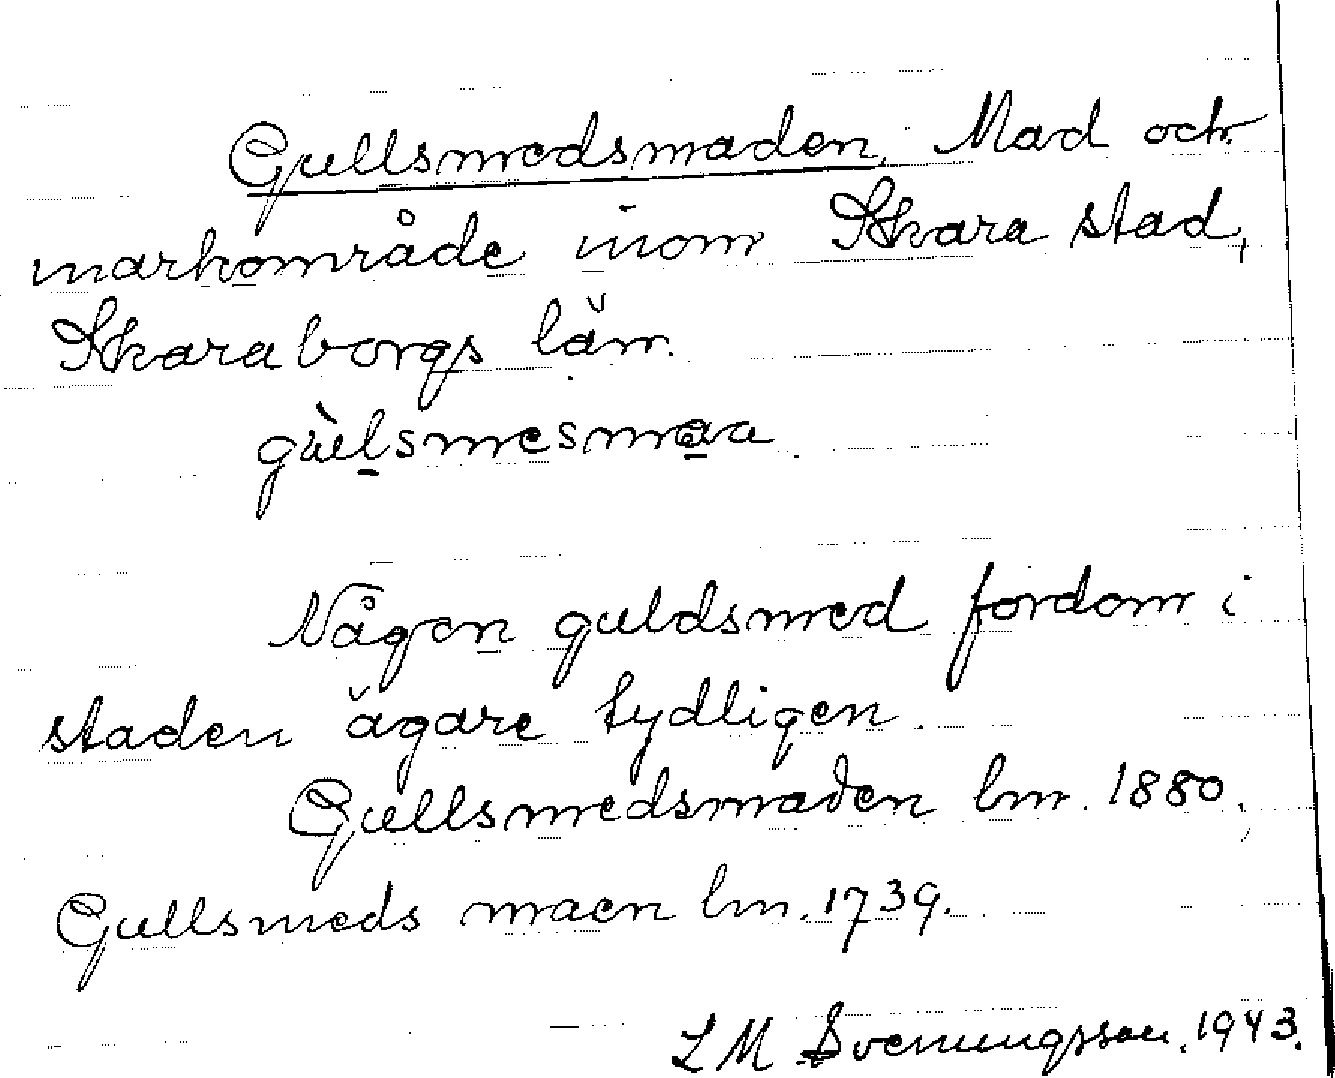 Gullsmedsmaden. Mad och
markområde inom Skara stad,
Skaraborgs län.
gùlsmesmaa
Någon guldsmed fordom i
staden ägare tydligen.
Gullsmedsmaden lm. 1880,
Gullsmeds maen lm. 1739.
L M Svenungsson. 1943.